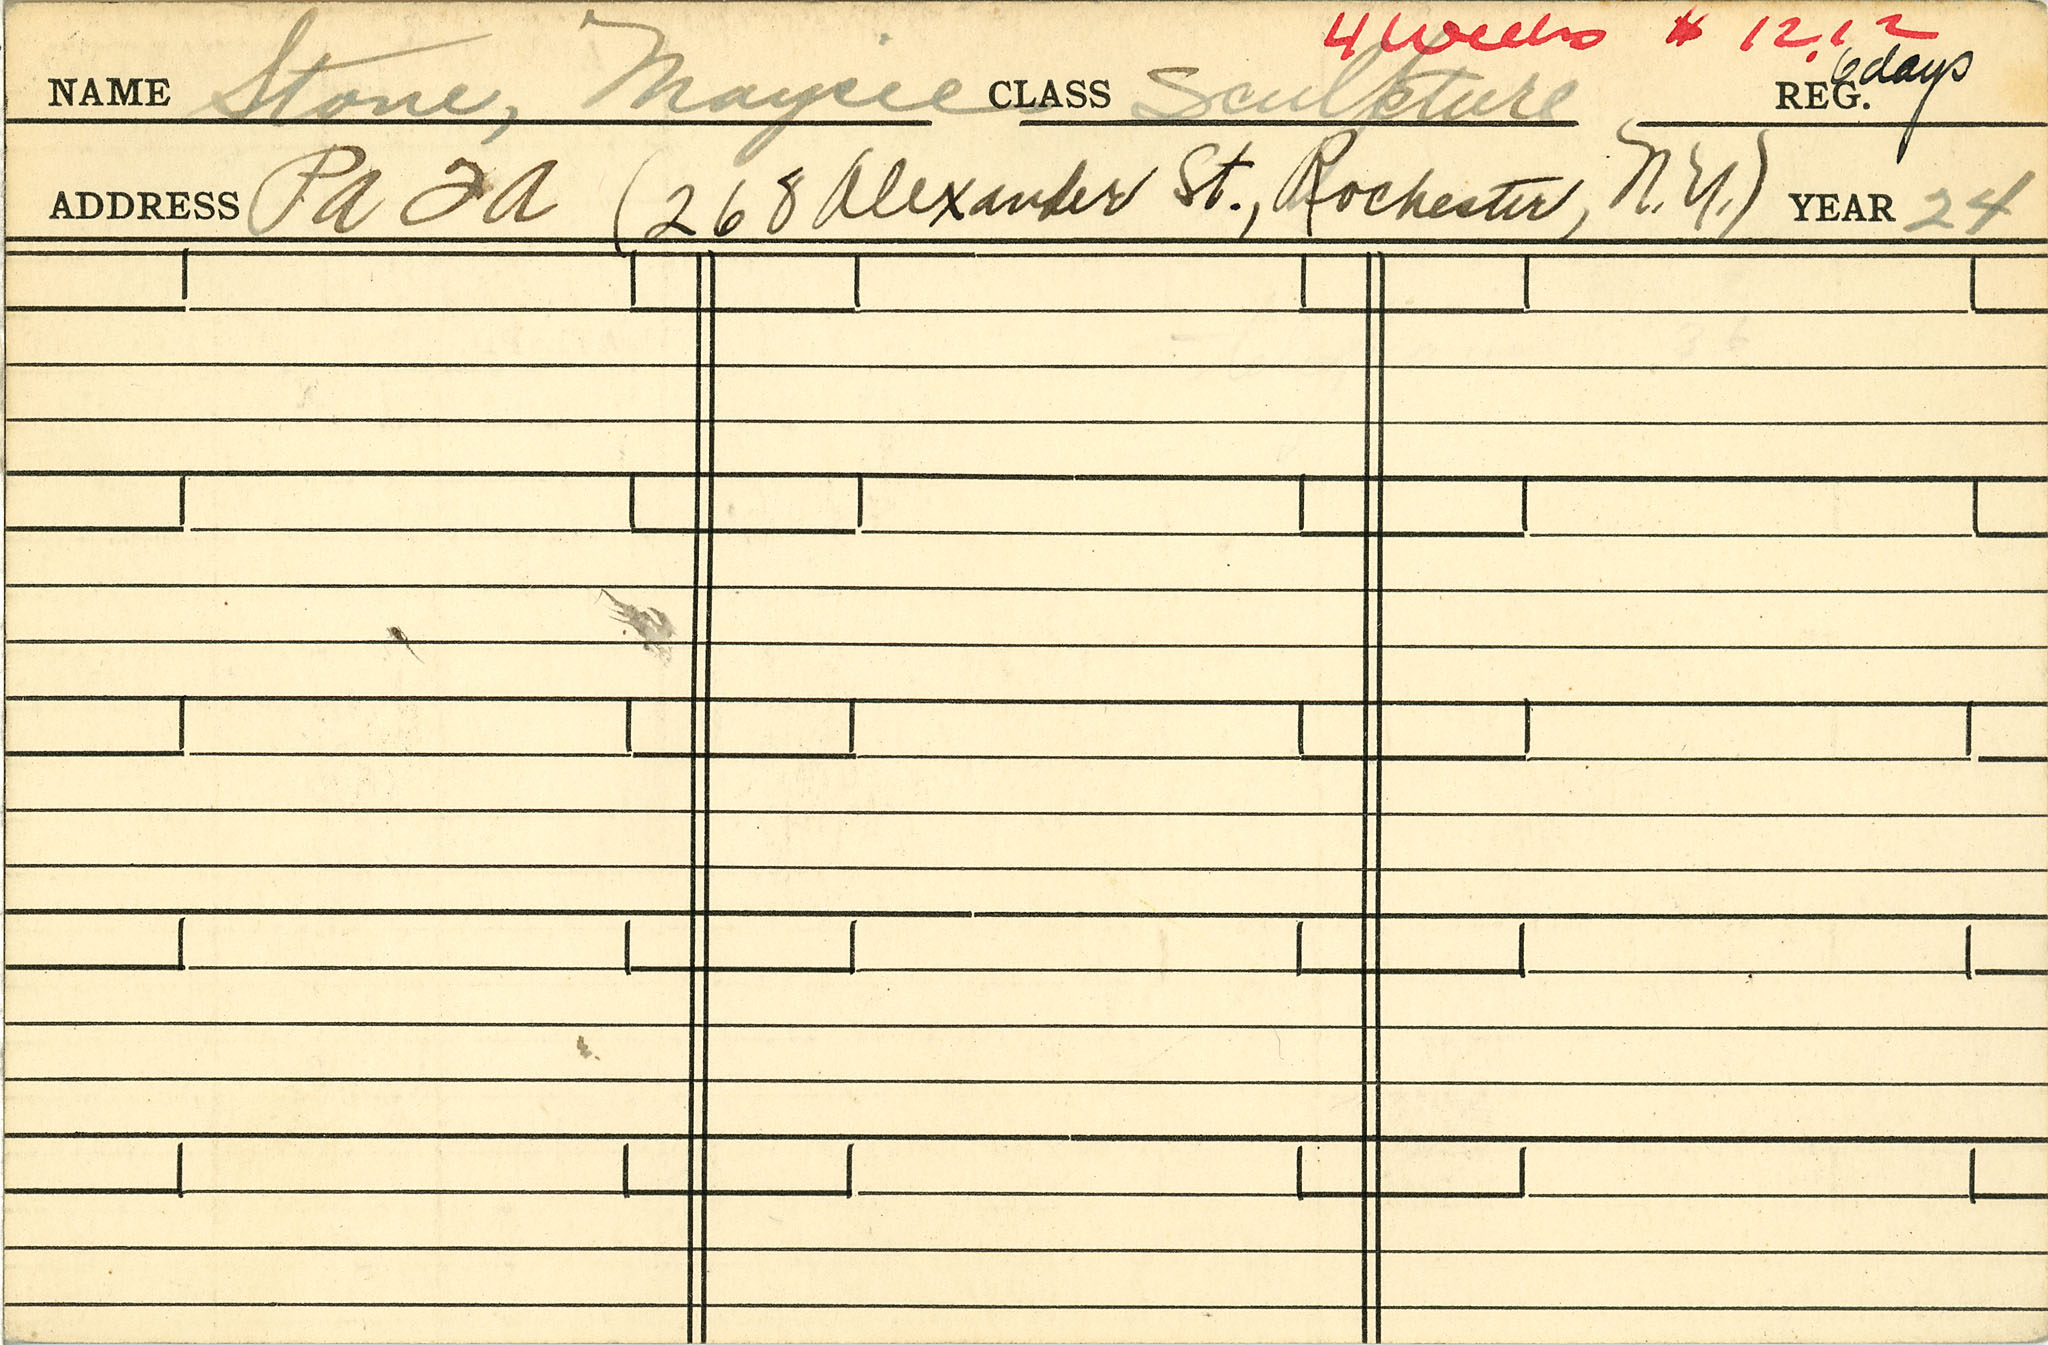 4 Weeks # 12.12
NAME Stone, Maysie CLASS Sculpture REG. 6 days
ADDRESS PAFA (268 Alexander St., Rochester, N.Y.) YEAR 24